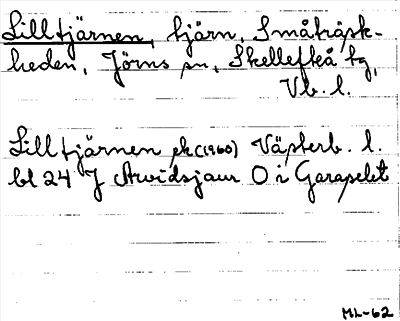 Lilltjärnen, tjärn, Småträsk-
heden, Jörns sn, Skellefteå tg,
Vb. l.
Lilltjärnen ek (1960) Västerb. l.
bl 24 J Arvidsjaur O i Garapelet
ML-62